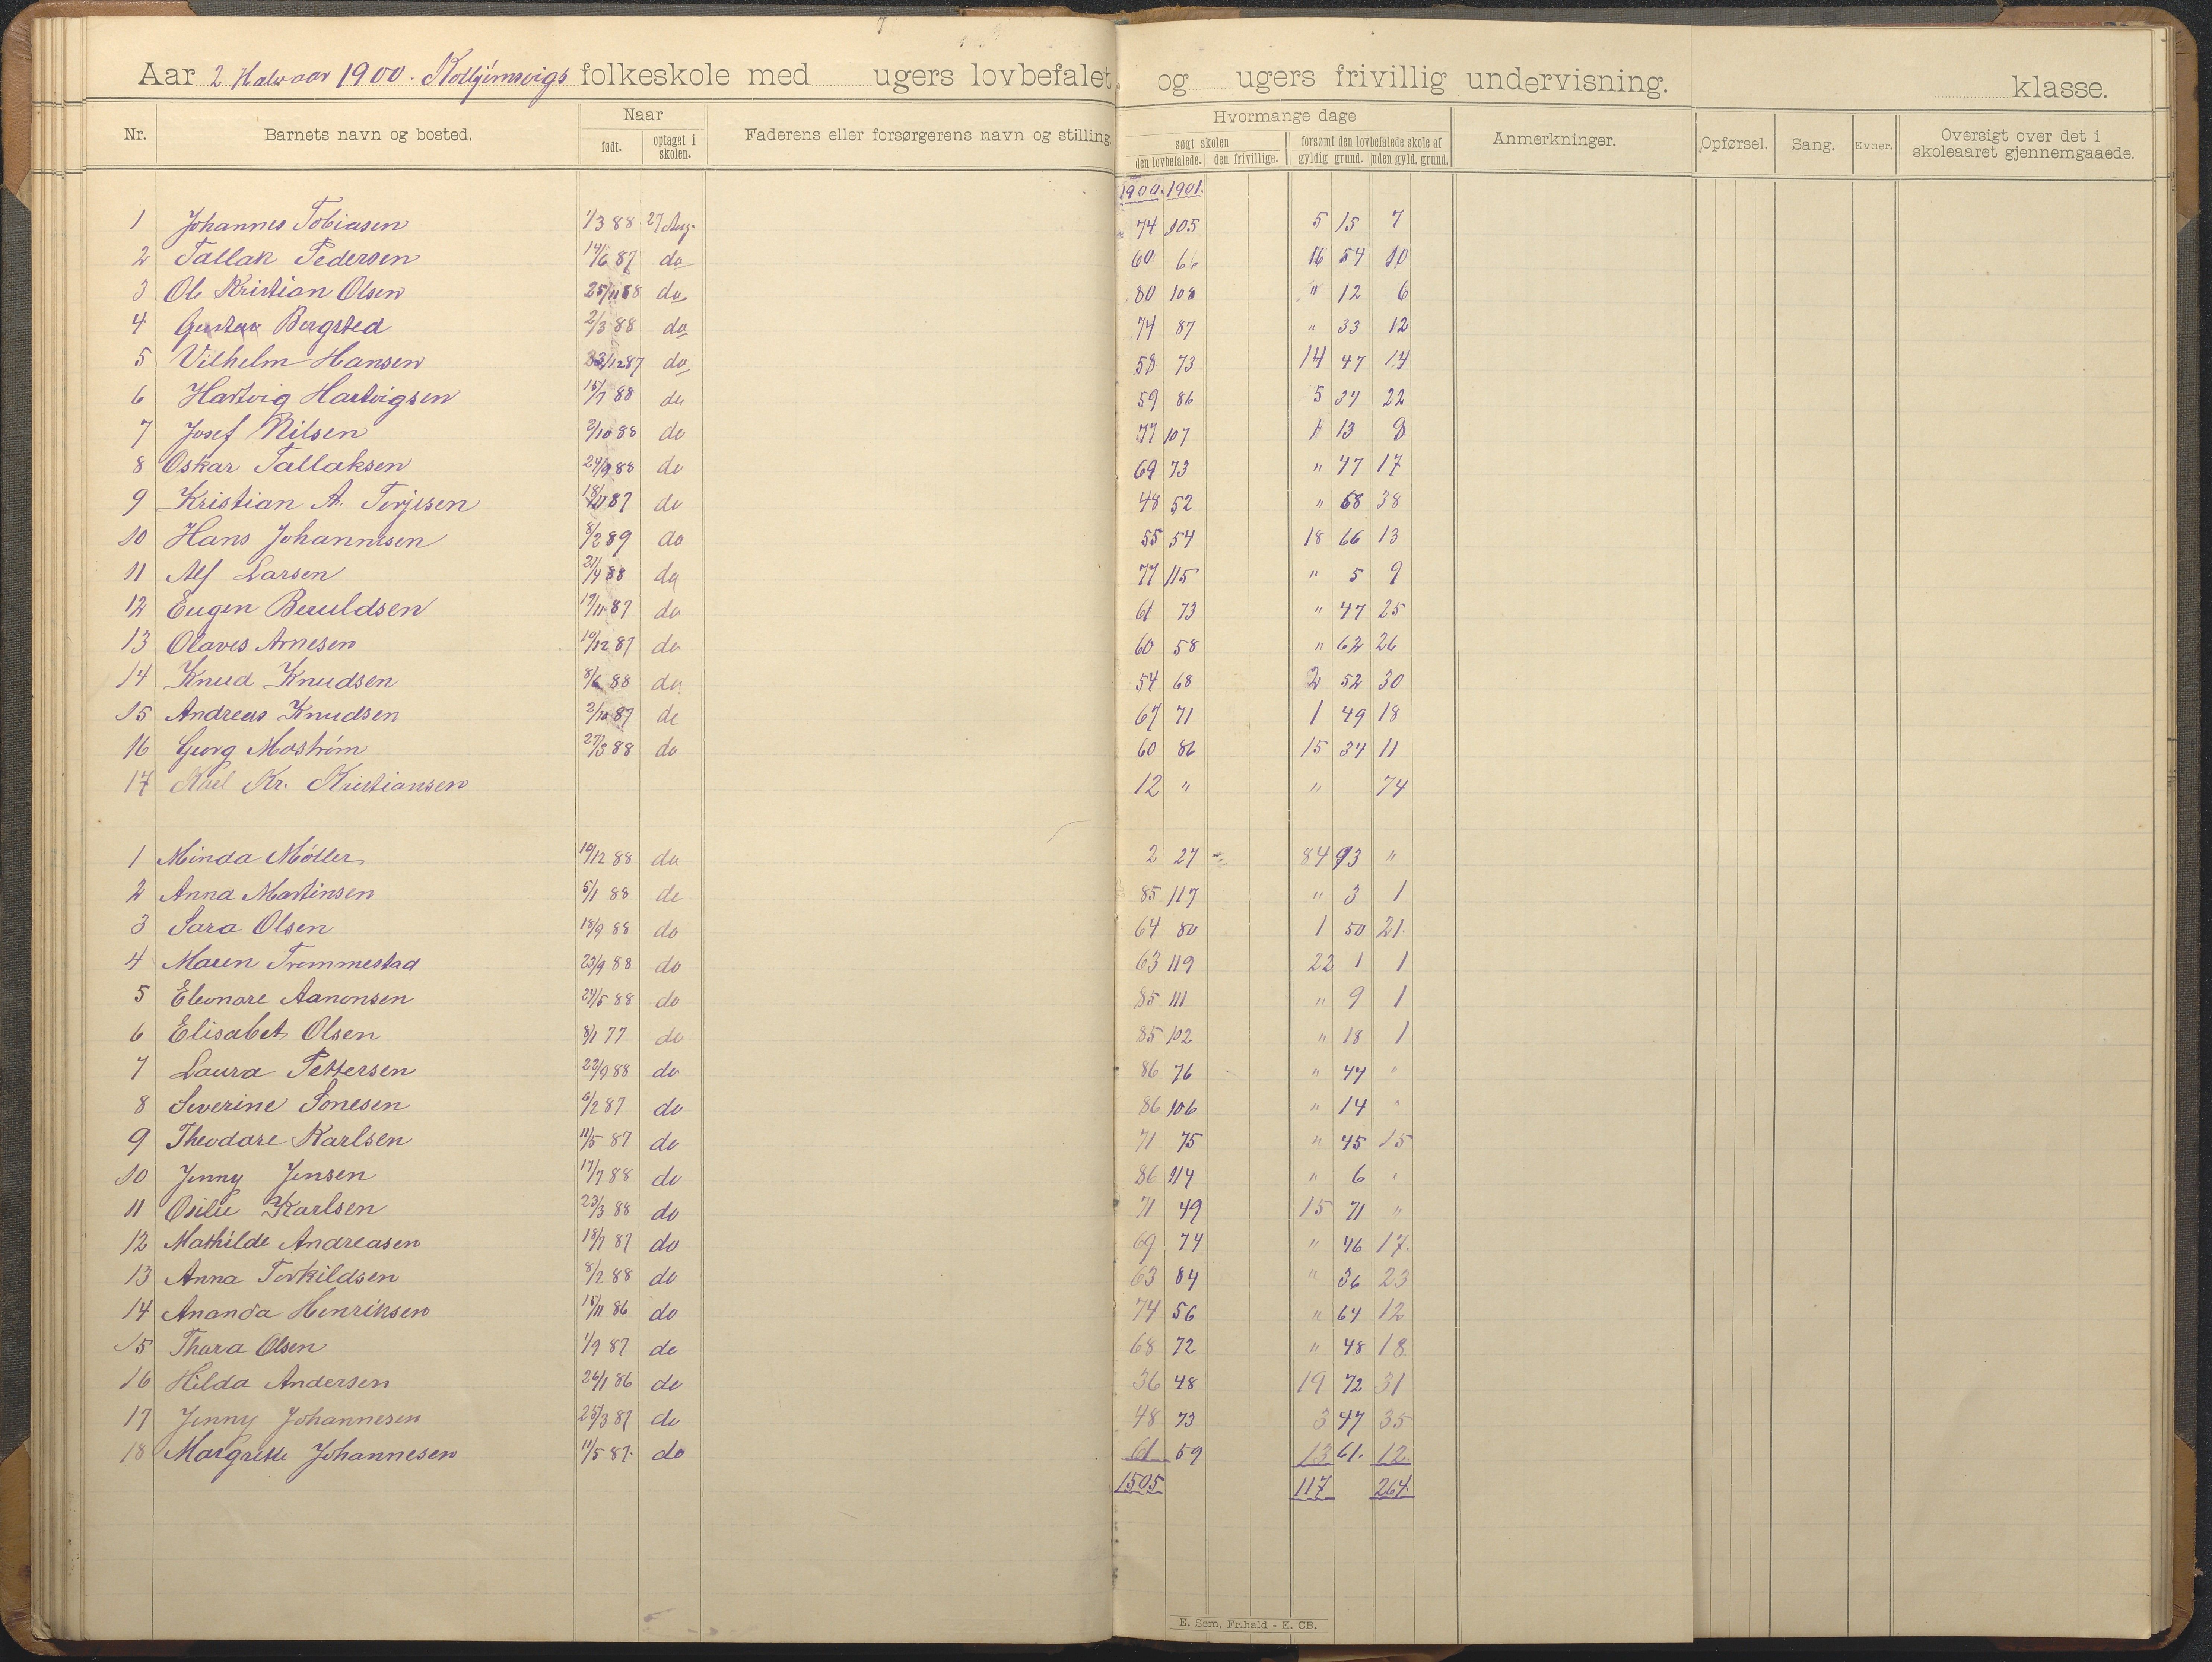 Aar 2 Halvaar 1900. Kolbjørnsvigs folkeskole med ugers lovbefalet og ugers frivillig undervisning. klasse.
Nr. Barnets navn og bosted. Naar født. optaget i skolen. Faderens eller forsørgerens navn og stilling. Hvormange dage søgt skolen den lovbefalede. den frivillige. forsømt den lovbefalede skole af gyldig grund. uden gyld. grund. Anmerkninger. Opførsel. Sang. Evner. Oversigt over det i skoleaaret gjennemgaaede.
1900. 1901.
1 Johannes Tobiasen 1/3 88 27 Aug. 74 105 5 15 7
2 Tallak Pedersen 14/6 87 do 60 66 16 54 10
3 Ole Kristian Olsen 25/11 88 do 80 108 " 12 6
4 Gustav Bergsted 2/3 88 do 74 87 " 33 12
5 Vilhelm Hansen 23/12 87 do 58 73 14 47 14
6 Hartvig Hartvigsen 15/7 88 do 59 86 5 34 22
7 Josef Nilsen 2/10 88 do 77 107 1 13 8
8 Oskar Tallaksen 24/9 88 do 69 73 " 47 17
9 Kristian A. Terjesen 18/11 87 do 48 52 " 68 38
10 Hans Johannesen 8/2 89 do 55 54 18 66 13
11 Alf Larsen 21/4 88 do 77 115 " 5 9
12 Eugen Beruldsen 17/11 87 do 61 73 " 47 25
13 Olaves Arnesen 10/12 87 do 60 58 " 62 26
14 Knud Knudsen 8/6 88 do 54 68 2 52 30
15 Andreas Knudsen 2/10 87 do 67 71 1 49 18
16 Georg Mostrøm 27/3 88 do 60 86 15 34 11
17 Karl Kr. Kristiansen 12 " " 74
1 Minda Møller 10/12 88 do 2 27 84 93 "
2 Anna Martinsen 5/1 88 do 85 117 " 3 1
3 Sara Olsen 18/9 88 do 64 80 1 50 21.
4 Maren Trommestad 23/9 88 do 63 119 22 1 1
5 Eleonore Aanonsen 24/5 88 do 85 111 " 9 1
6 Elisabet Olsen 8/1 77 do 85 102 " 18 1
7 Laura Pettersen 22/9 88 do 86 76 " 44 "
8 Severine Sonesen 6/2 87 do 86 106 " 14 "
9 Theodore Karlsen 11/5 87 do 71 75 " 45 15
10 Jenny Jensen 17/7 88 do 86 114 " 6 "
11 Osilie Karlsen 23/3 88 do 71 49 15 71 "
12 Mathilde Andreasen 18/7 87 do 69 74 " 46 17.
13 Anna Torkildsen 8/2 88 do 63 84 " 36 23
14 Ananda Henriksen 15/11 86 do 74 56 " 64 12
15 Thora Olsen 1/9 87 do 68 72 " 48 18
16 Hilda Andersen 26/1 86 do 36 48 19 72 31
17 Jenny Johannesen 25/3 87 do 48 73 3 47 35
18 Margrethe Johannesen 11/5 87. do 61 59 13 61. 12.
1505 117 264.
E. Sem, Fr.hald - E. CB.